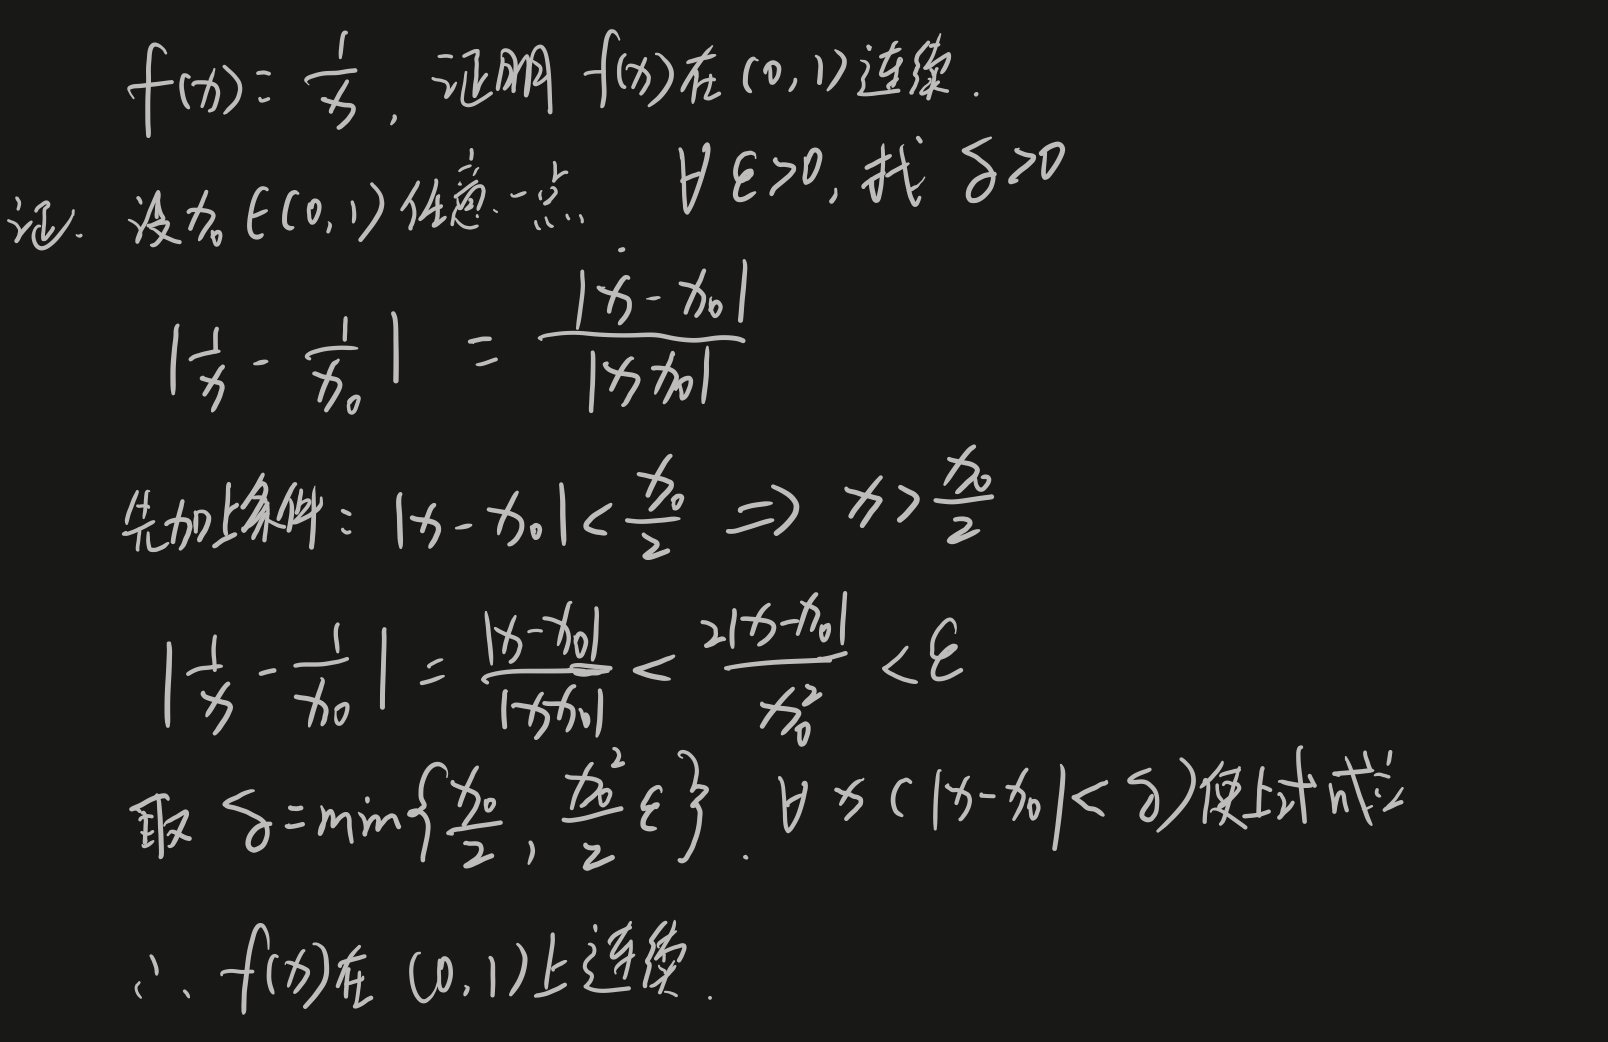 f(x) = 1/x, 证明 f(x) 在 (0, 1) 连续.
证. 设 x₀ ∈ (0, 1) 任意一点. ∀ ε>0, 找 δ>0
|1/x - 1/x₀| = |x - x₀| / |x x₀|
先加上条件: |x - x₀| < x₀/2 ⇒ x > x₀/2
|1/x - 1/x₀| = |x - x₀| / |x x₀| < 2|x - x₀| / x₀² < ε
取 δ = min{x₀/2, x₀²/2 ε}. ∀ x (|x - x₀| < δ) 使上式成立
∴ f(x) 在 (0, 1) 上连续.